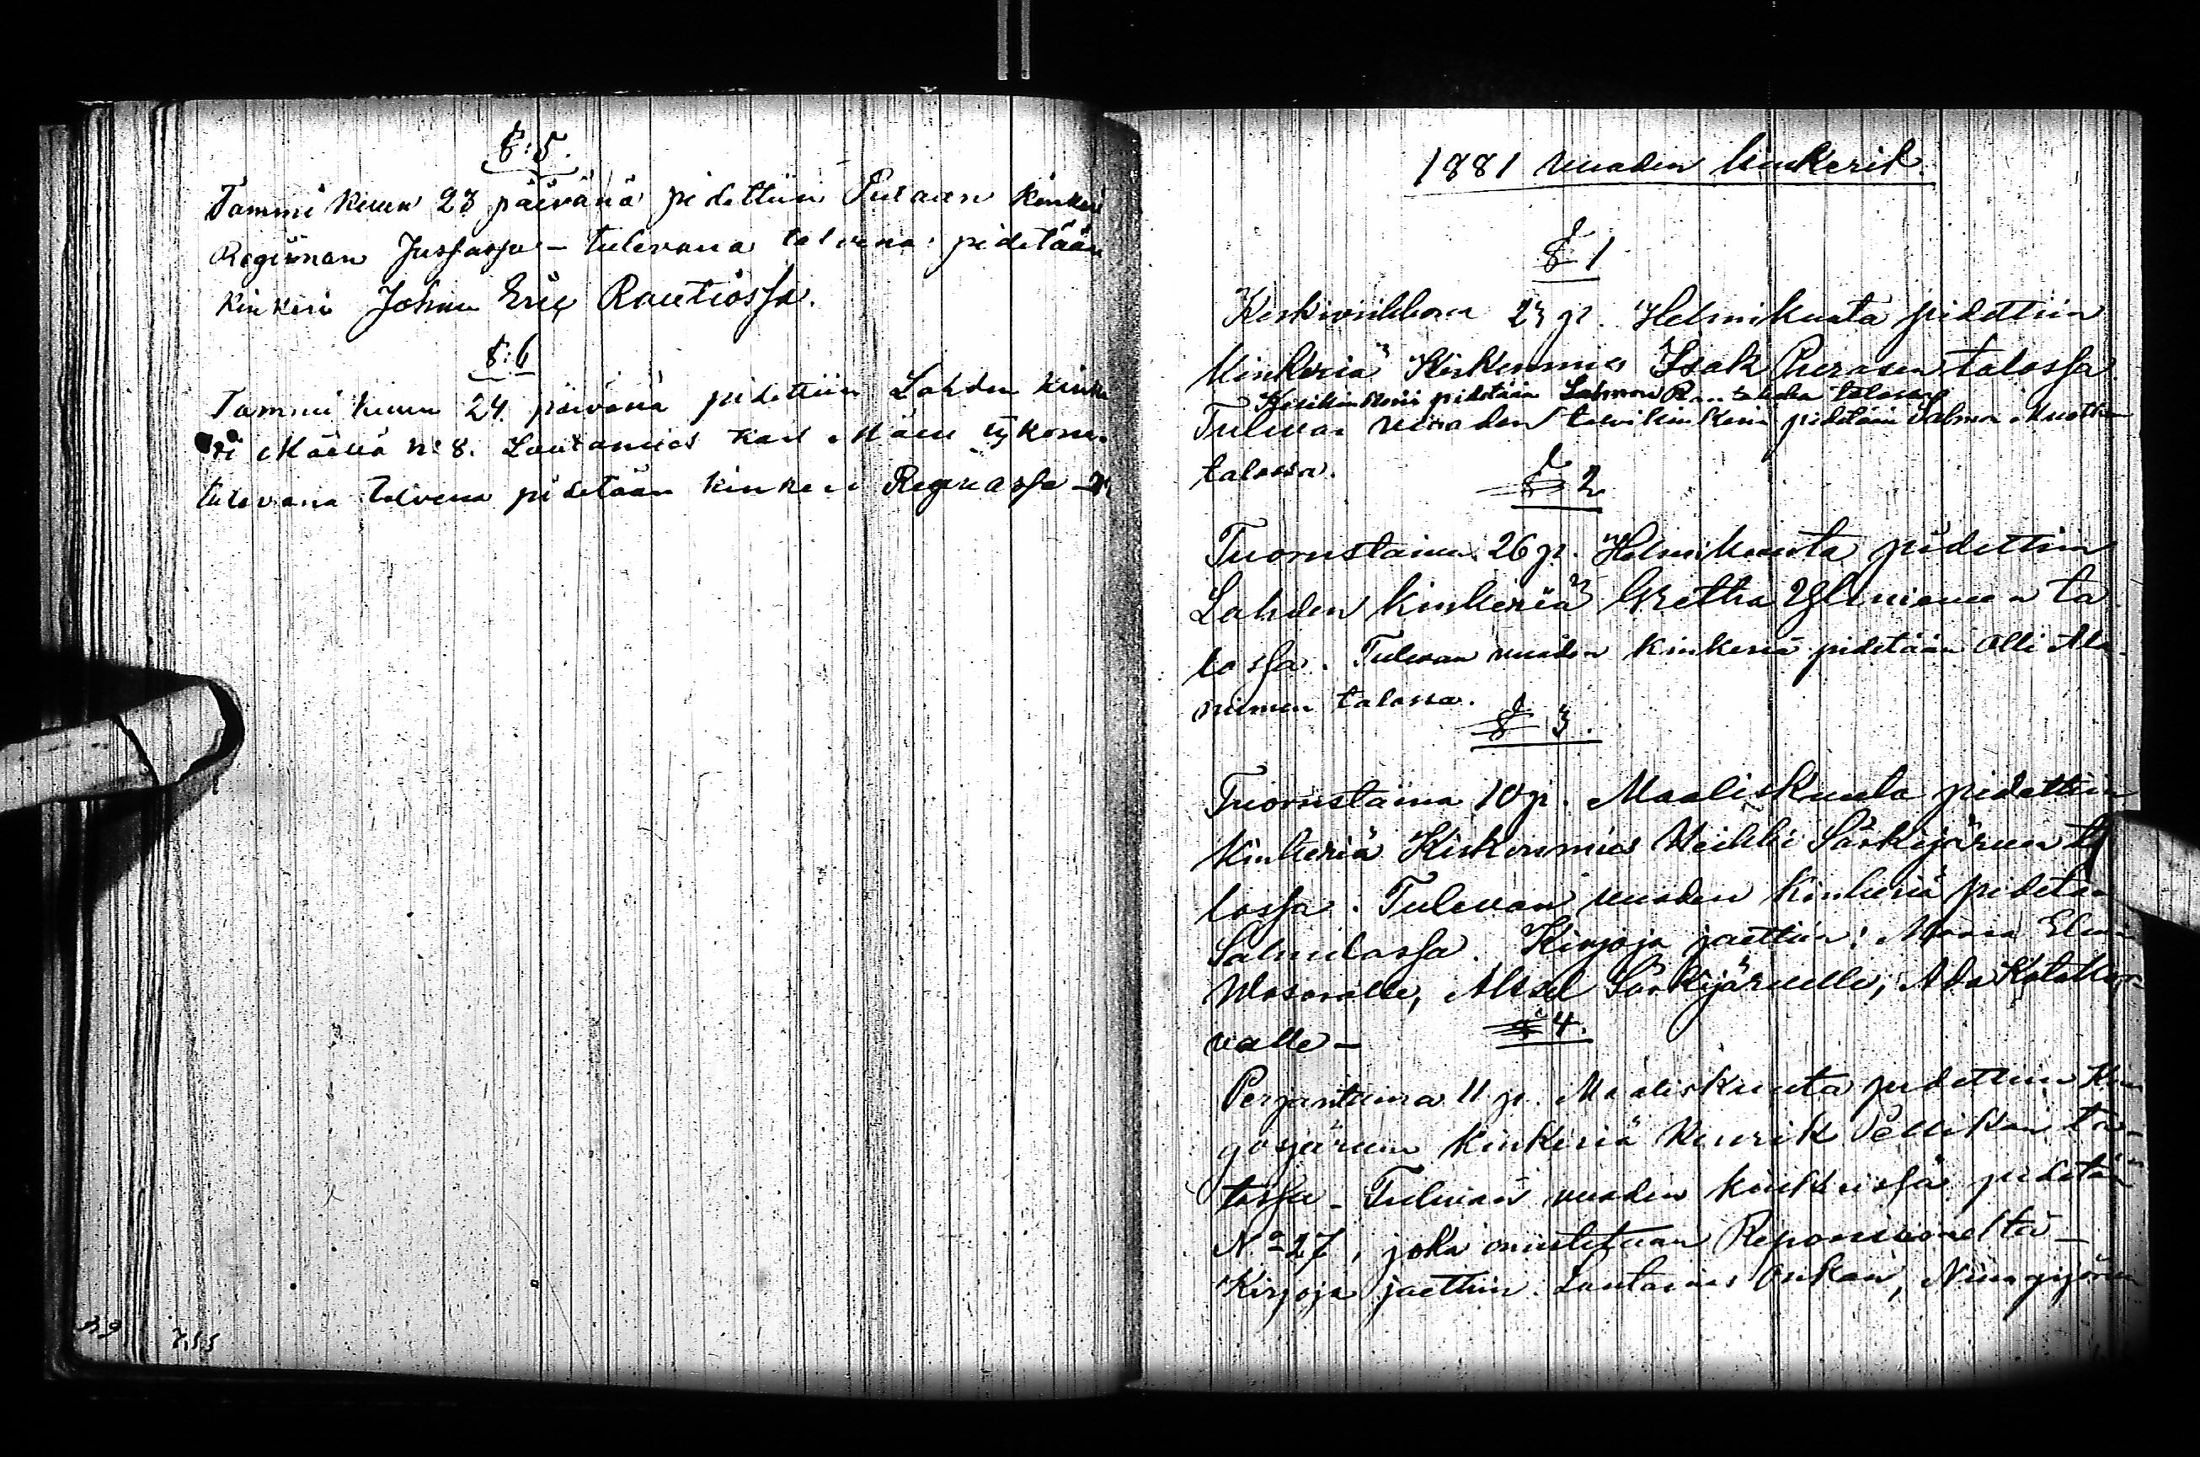 §:5.
Tammi kuun 23 päivänä pidettiin Puraan kinkeri
Reginan Jussassa – tulevana talvena pidetään
kinkeri Johan Eric Rautiossa.
§:6
Tammi kuun 24 päivänä pidettiin Lahden kinke
ri Mäellä N:8. Lautamies Karl Mäen tykönä.
tulevana talvena pidetään kinkeri
1881 vuoden kinkerit.
§ 1
Keskiviikkona 23 p. Helmikuuta pidettiin
Kinkeriä Kirkonmies Isak Puraasen talossa
Kesäkinkeriä pidetään Salmon talossa
Tulevan vuoden talvikinkeri pidetään Salmon
talossa.
§ 2
Tuorustaina 26 p. Helmikuuta pidettiin
Lahden kinkeriä Gretha Yliniemen ta
lossa. Tulevan vuoden kinkeriä pidetään Olli Ala
niemen talossa.
§ 3.
Tuorustaina 10 p. Maaliskuuta pidettiin
Kinkeriä Kirkonmies Heikki Särkijärven ta
lossa. Tulevan vuoden kinkeriä pidetän
Salmilassa. Kirjoja jaettiin: Maria Elina
Wasaralle, Aksel Särkijärvelle, Ada
valle –
§ 4.
Perjantaina 11 p. Maaliskuuta pidettiin
kinkeriä Henrik Pellikan ta-
lossa – Tulevan vuoden kinkerissä pidetän
No 27, joka omistetaan
Kirjoja jaettiin. Lautamies
39
755